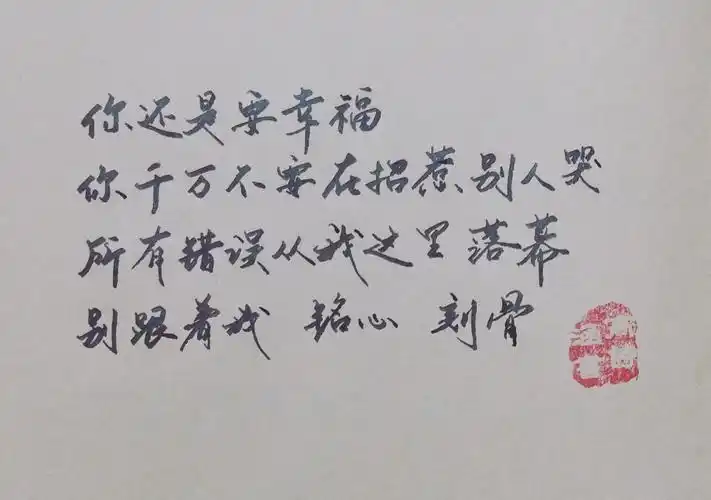 你还是要幸福
你千万不要在招惹别人哭
所有错误从我这里落幕
别跟着我 铭心 刻骨